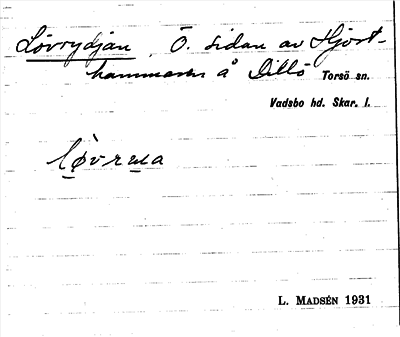 Lövrydjan, Ö. sidan av Hjort-
hammaren å Dillö Torsö sn.
Vadsbo hd. Skar. l.
L. MADSÉN 1931